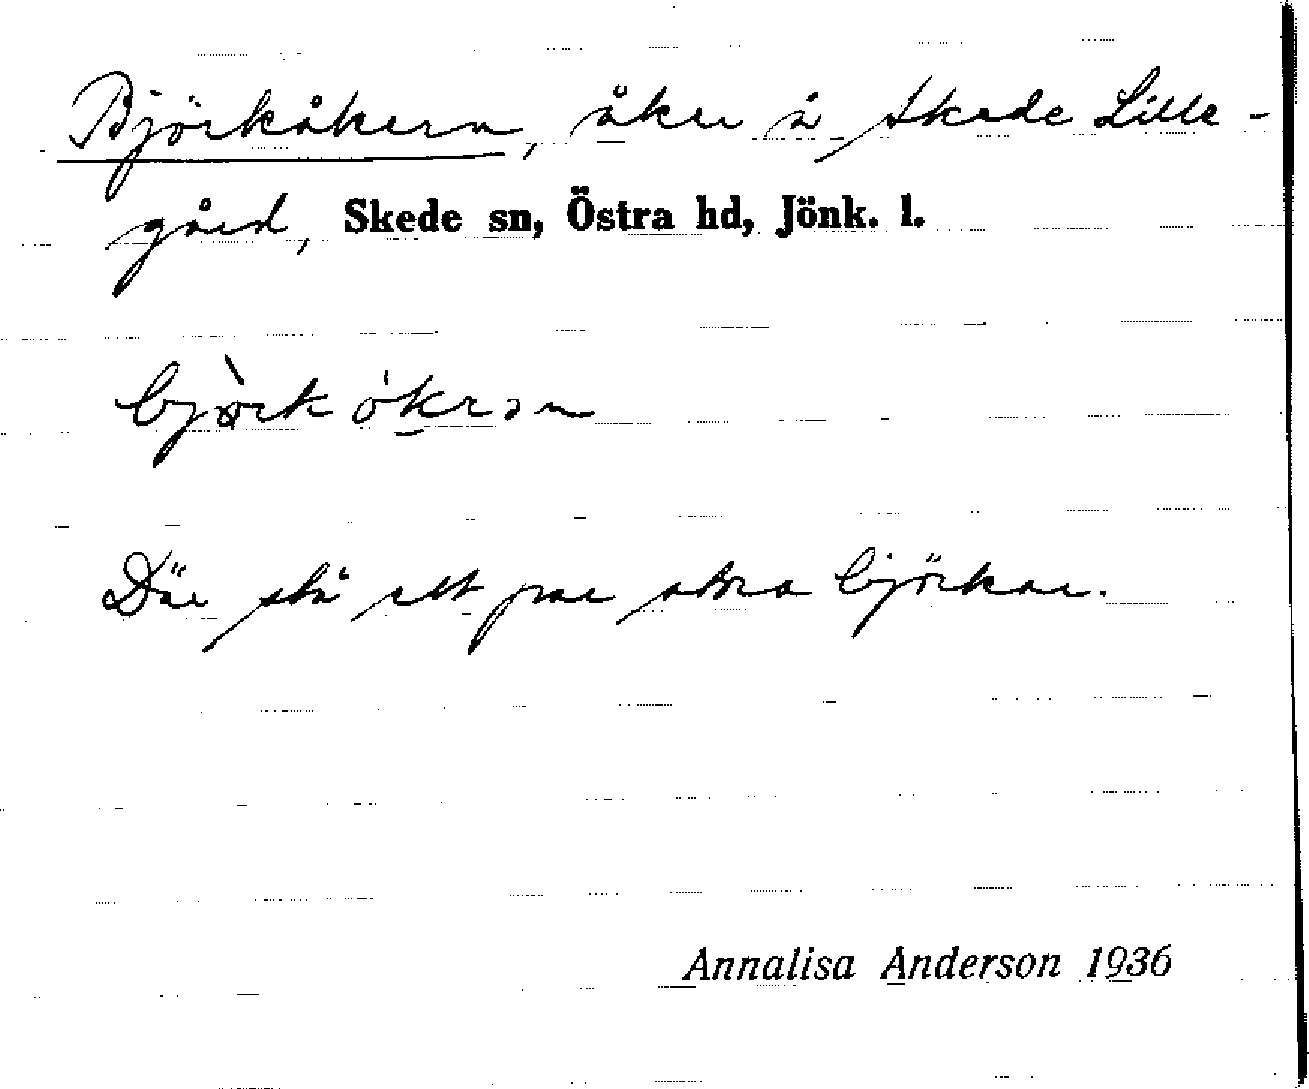 Björkåkern, åker å Skede Lille-
gård, Skede sn, Östra hd, Jönk. l.
bjòrkókrən
Där stå ett par stora björkar.
Annalisa Anderson 1936